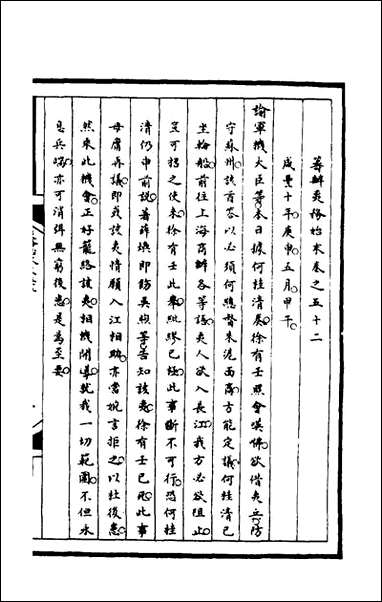 籌辦夷務始末卷之五十二
咸豐十年庚申五月甲午
諭軍機大臣等本日據何桂清奏徐有壬照會𠸄㗲欲借夷兵防
守蘇州該酋答以必須何總督來滬面商方能定議何桂清已
坐輪船前往上海商辦各等語夷人欲入長江我方必欲阻止
豈可招之使來徐有壬此舉紕繆已極此事斷不可行恐何桂
清仍申前説著薛煥即飭吳煦等告知該夷徐有壬已死此事
毋庸再議即或該夷情願入江相助亦當婉言拒之以杜後患
然來此機會正好籠絡該夷相機開導就我一切範圍不但永
息兵端亦可消弭無窮後患是為至要